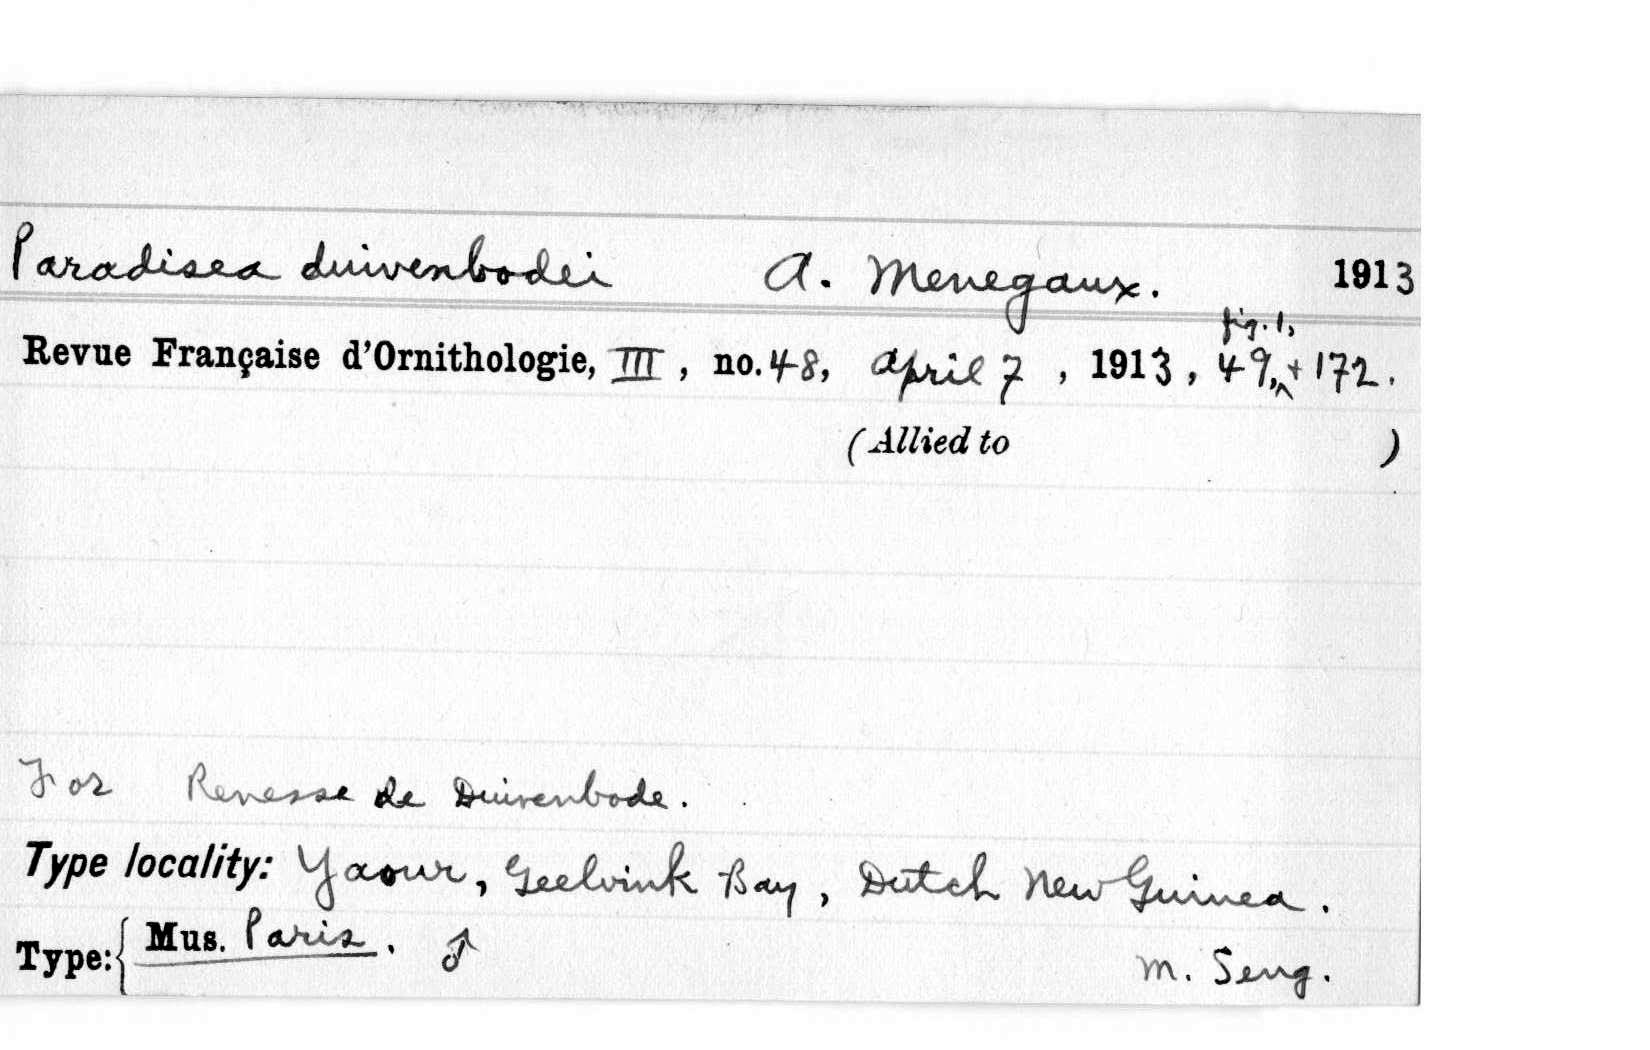 Paradisea duivenbodei A. Menegaux. 1913
Revue Française d'Ornithologie, III, no. 48, April 7, 1913, 49, fig. 1, + 172.
(Allied to )
For Renesse de Duivenbode.
Type locality: Yaour, Geelvink Bay, Dutch New Guinea.
Type: { Mus. Paris. ♂
M. Seng.